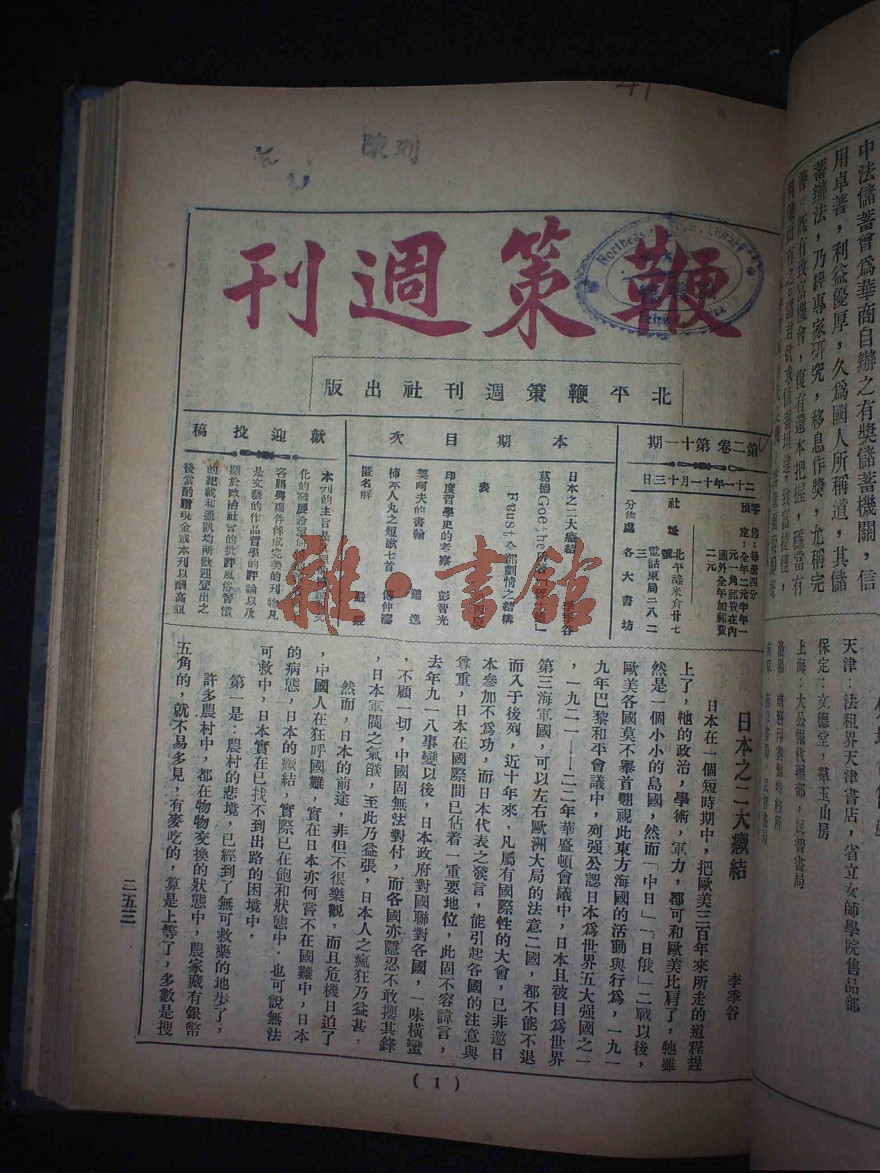 41
陳列
鞭策週刊
Northeastern Univ. Library
北平鞭策週刊社出版
第二卷第十一期
二十一年十一月十三日
零售：每册四分
預定：全年二元半年一
元一角郵費在內
國外全年加郵費
二元
社址 北平禄米倉廿七
號 電話東局二八二
三
分售處 各大書坊
本期目次
日本之二大癥結 李季谷
葛德Goethe
Faust全部劇情之結構
表
印度哲學史的考察 彭智光
契呵夫的書翰
柿本人丸之短歌七首 傅仲濤
匿名解
歡迎投稿
本刊的主旨是
化的發展
容夠與應件俾成完美的刊物凡
是文藝的作品哲學的評論以及
關於政治社會的批評風俗習慣
的記載和通訊均所歡迎登出之
後當酌贈現金或本刊以酬高誼
日本之二大癥結
李季谷
日本在一個短時期中，把歐美三百年來所走的道程趕
上了，牠的政治，學術，軍力，都可和歐美比肩了，牠雖
然是一個小小的島國，然而「中日」「日俄」二戰以後，
歐美各國莫不舉首翹視此東方海國的活動與行爲，一九一
九年巴黎和平會議中，列强公認日本爲世界五大强國之一
，一九二一——二二年華盛頓會議中，日本且被目爲世界
第三海軍國，可以左右歐洲大局的法意二國，都不能不退
而入于後列，近十年來，凡屬有國際性的大會，已非邀日
本參加不爲功，而日本代表之發言，能引起各國的注意與
尊重，日本在國際間已佔着一重要地位，此固不容諱言，
去年九一八事變以後，日本政府對國聯對各國，一味橫蠻
，不顧一切，中國固無法對付，而各國亦隱忍不敢攖其鋒
，日本軍閥之氣燄，至此乃益張，日本人之瘋狂乃益甚，
然而，日本的前途，非但不很樂觀，而且危機日迫了
，中國人在狂呼國難，實在日本亦何嘗不在國難中，日本
的病態，日本的癥結，實際已在飽和狀態中，也可說無法
可救中，日本實在已找不到出路的困境中，
第一是：農村的悲境，已經到了無可救藥的地步了；
許多農村中，都在物物交換的狀態中，農家藏有銀幣
五角的，就不易多見，有麥吃的，算是上等了，多數是搜
二五三
(1)
雜·書館
中法儲蓄會爲華商自辦之有獎儲蓄機關，信
用卓著，利益優厚，久爲國人所稱道，其儲
蓄辦法，乃經專家研究，移息作獎，尤稱完
善。旣有致富機會，復有還本把握，確當有
天津：法租界天津書店，省立女師學院售品部
保定：文德堂，羣玉山房
上海：大公報代辦部，民智書局